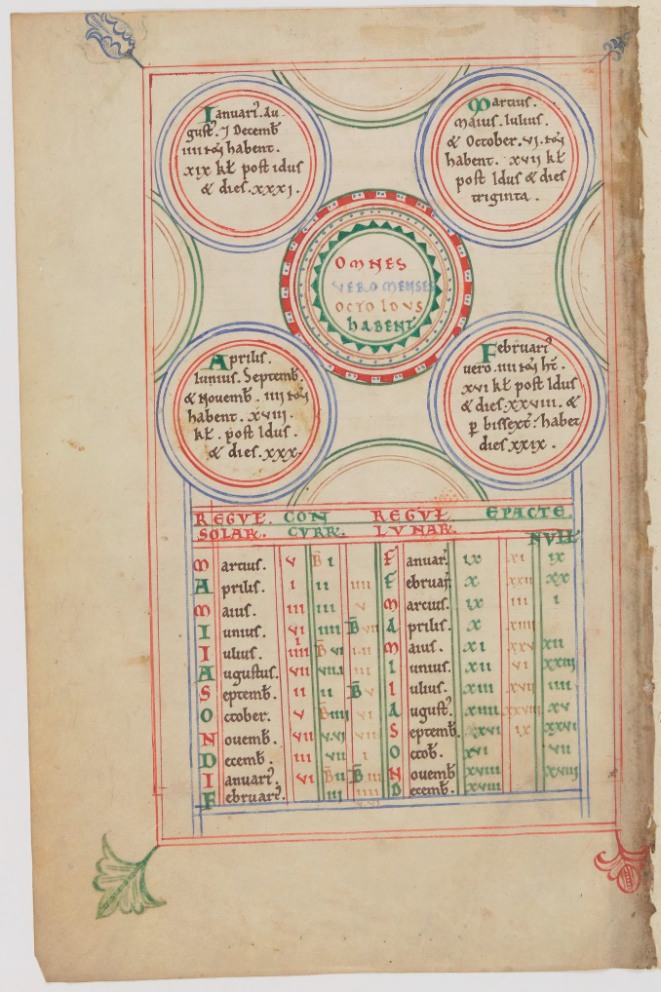 Ianuari. Au-
gust. 7 Decemb
iiii noń habent.
xix kł post idus
& dies xxxi.
Martius.
Maius. Iulius.
& October. vi. noń
habent. xvii kł
post Idus & dies
triginta.
OMNES
VERO MENSES
OCTO IDVS
HABENT
Aprilis.
Iunius. Septemb.
& Novemb. iiii noń
habent. xviii.
kł. post Idus.
& dies. xxx.
Februari
vero. iiii noń ht.
xvi kł post Idus
& dies. xxviii. &
p bissext. habet
dies xxix.
REGVŁ. CON REGVŁ EPACTE.
SOLAR. CVRR. LVNAR. NVLŁ
Martius. v B i Ianuar. ix xi ix
Aprilis. i ii iiii Februar. x xxii xx
Maius. iii iii v Marcius. ix iii i
Iunius. vi iiii B Aprilis. x xiiii
Iulius. iiii B vi Maius. xi xii
Augustus. vii vii Iunius. xii vi xxiii
Septemb. ii B v Iulius. xiii xvii iiii
October. v B iiii August. xiii xxviii xv
Novemb. vii Septemb. ix xxvi
Decemb. iii vii i Octob. xvi vii
Ianuari. vi B ii B Novemb xviii xviii
Februari. iii iiii Decemb. xviii